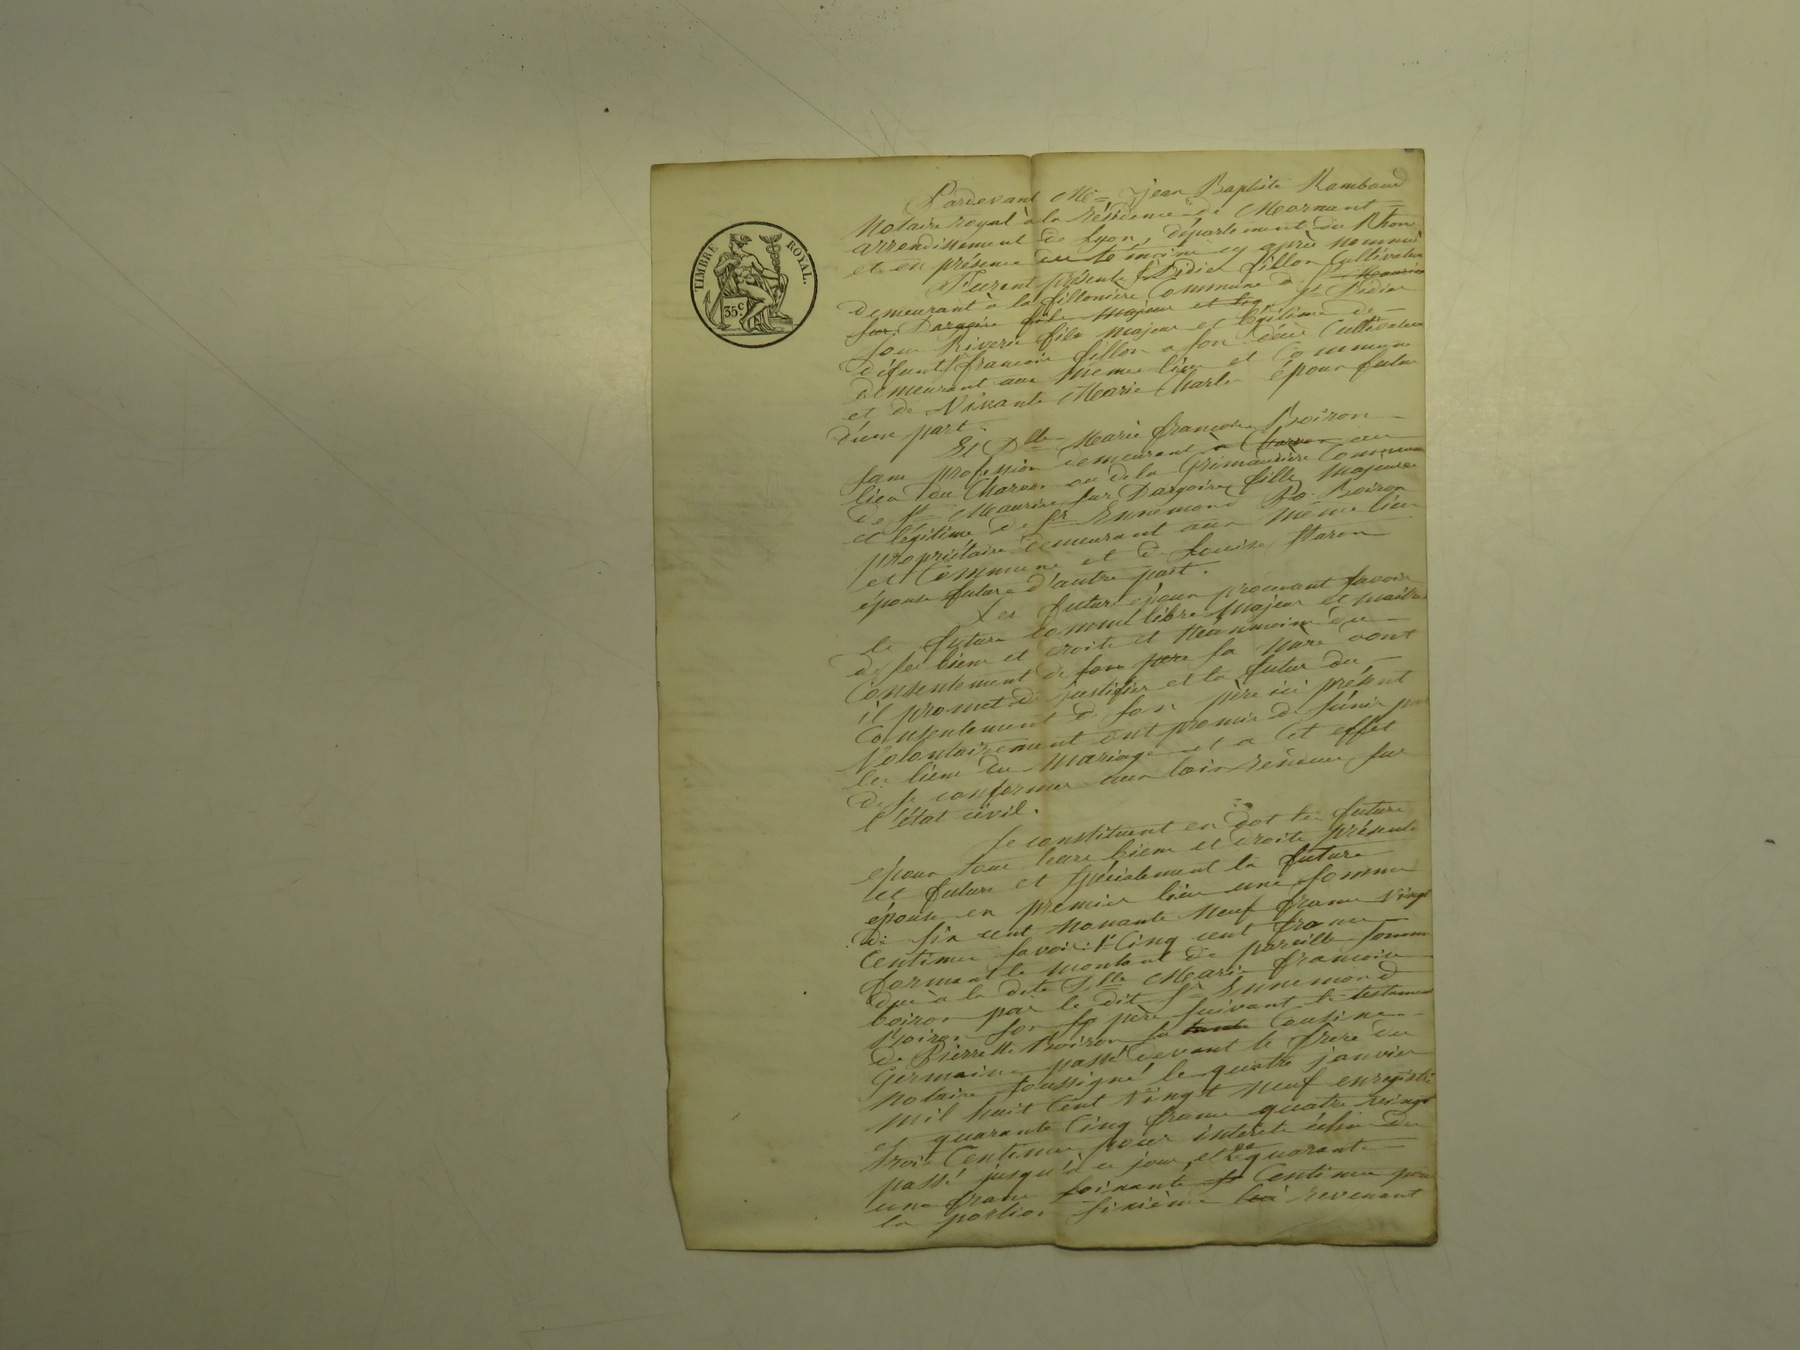 TIMBRE ROYAL.
35 c
Pardevant Me Jean Baptiste Rambaud
Notaire royal à la résidence de Mornant
arrondissement de Lyon, département du Rhone
et en présence des témoins cy après nommés
Furent présents Sr Didier fillon Cultivateur
demeurant à la fillonière Commune de St Maurice
sur Dargoire fils majeur et leg St Didier
sous Riverie fils majeur et légitime de
défunt françois fillon a son décès Cultivateur
demeurant aux mêmes lieu et Commune
et de Vivante Marie Charles époux futur
d'une part
Et Dlle Marie françoise Boiron
sans profession demeurant à Charvon au
lieu du Charvon ou de la Grimaudière Commune
de St Maurice sur Dargoire fille majeure
et légitime de Sr Ennemond Boiron
propriétaire demeurant aux même lieu
et Commune et de Louise Staron
épouse future d'autre part.
Les futurs époux procédant savoir
le futur comme libre majeur et maître
de ses biens et droits et néanmoins du
Consentement de son père sa mère dont
il promet de justifier et la future du
Consentement de son père ici présent
Volontairement ont promis de s'unir par
les liens du mariage et a cet effet
de se conformer aux lois rendues sur
l'état civil.
Se constituent en dot les futurs
époux tous leurs biens et droits présents
et futurs et spécialement la future
épouse en premier lieu une somme
de six cent nonante neuf francs vingt
Centimes savoir: 1° Cinq cent francs
formant le montant de pareille somme
due à la dite Dlle Marie françoise
boiron par le dit Sr Ennemond
Boiron son père suivant le testament
de Pierrette Boiron sa tante Cousine
Germaine passé devant le frère du
notaire soussigné le quatre janvier
mil huit Cent vingt neuf enregistré
et quarante Cinq francs quatre vingt
trois Centimes pour intérêts échus du
passé jusqu'à ce jour, et 2° quarante
une francs soixante Centimes pour
la portion sixième lui revenant